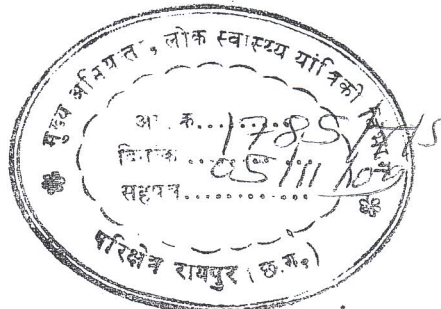 मुख्य अभियंता, लोक स्वास्थ्य यांत्रिकी विभाग
अ. क....1785/
दिनांक...05/11/09
सहपत्र............
परिक्षेत्र रायपुर (छ.ग.)